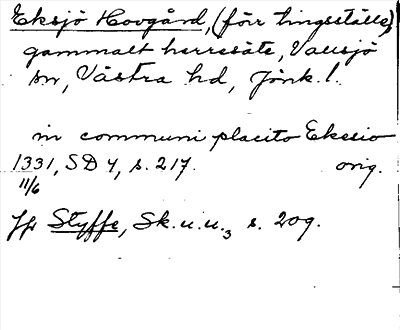 Eksjö Hovgård, (förr tingsställe),
gammalt herresäte, Vallsjö
sn, Västra hd, Jönk. l.
in communi placito Ekesio
1331, SD 4, s. 217. orig.
11/6
Jfr Styffe, Sk.u.u.3 s. 209.